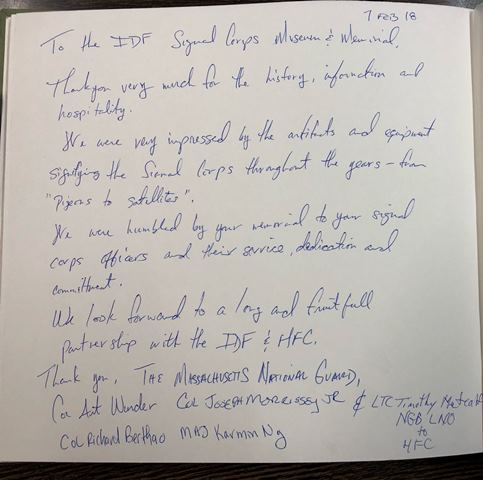 7 FEB 18
To the IDF Signal Corps Museum & Memorial,
Thank you very much for the history, information and
hospitality.
We were very impressed by the artifacts and equipment
signifying the Signal Corps throughout the years - from
"Pigeons to satellites".
We were humbled by your memorial to your signal
corps officers and their service, dedication and
committment.
We look forward to a long and fruitfull
partnership with the IDF & HFC.
Thank you, THE MASSACHUSETTS NATIONAL GUARD,
Col Art Wunder Col JOSEPH MORRISSEY JR & LTC Timothy
NGB LNO
to
HFC
Col Richard MAJ Karmon Ng